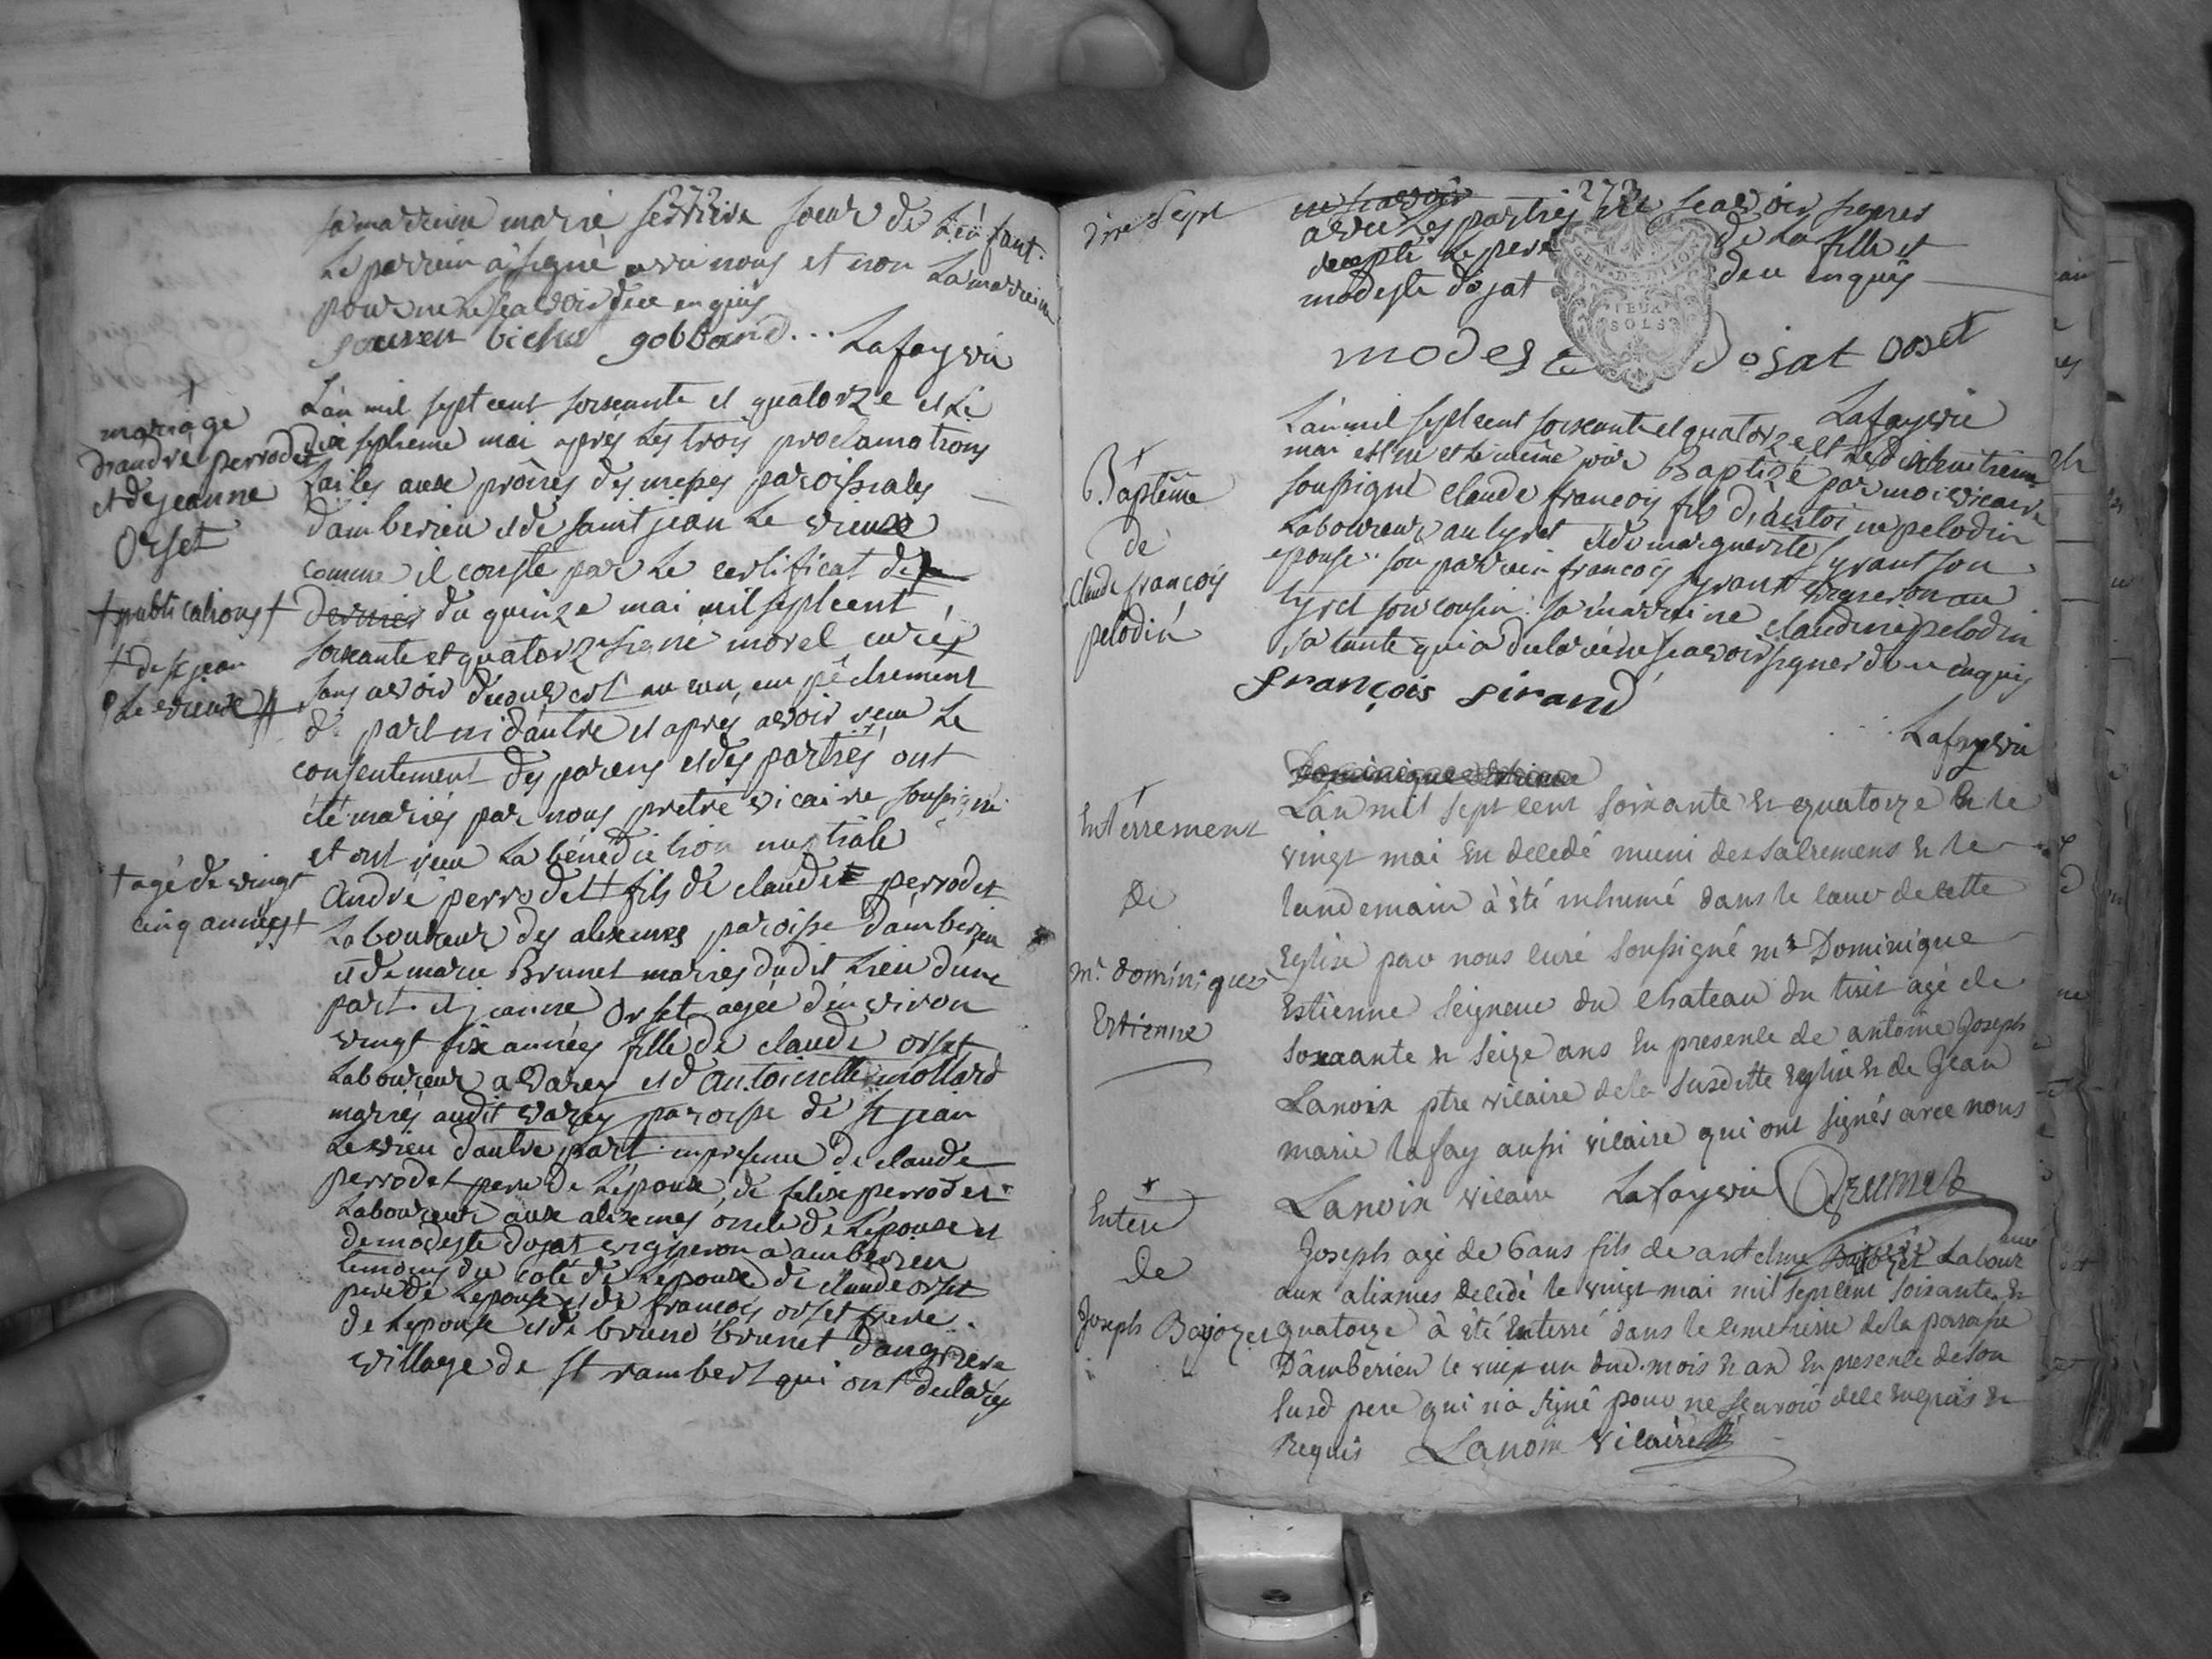 272
sa marreine marie serriere soeur de L'enfant.
Le parrein à signé avec nous et non La marreine
pour ne le scavoir de ce enquis
gobband... Lafay vic
mariage
d'andré perrodet
et de jeanne
Orset
L'an mil sept cent soixante et quatorze et Le
dix septieme mai apres Les trois proclamations
faites aux prônes des messes paroissiales
d'amberieu et de saint jean Le vieux
comme il conste par Le certificat de
dernier du quinze mai mil sept cent
† publications †
† de st jean
Le vieux
soixante et quatorze signé morel curé
sans avoir decouvert aucun empêchement
de part ni d'autre et aprés avoir veu Le
consentement des parens et des parties ont
été mariés par nous pretre vicaire soussigné
et ont reçu La bénédiction nuptiale
† agé de vingt
cinq années †
André perrodet † fils de claude perrodet
Laboureur des alixmes paroisse d'amberieu
et de marie Brunet mariés dudit Lieu d'une
part et jeanne Orset agée d'environ
vingt six années fille de claude orset
Laboureur a varey et d'antoinette mollard
mariés audit varey paroisse de st jean
Le vieu d'autre part en presence de claude
perrodet pere de L'époux, de felix perrodet
Laboureur aux alixmes oncle de L'époux et
de modeste dojat vigneron a amberieu
temoins du coté de L'epoux de claude orset
pere de L'epouse et de francois orset frere
de L'epouse et de bruno brunet d'angriere
village de st rambert qui ont declarés
dix sept
273
ne scavoir
avec Les parties ne scavoir signer
excepté Le pere de La fille et
modeste dojat de ce enquis
GEN. DEUX SOLS
modeste Dojat orset
Lafay vic
Baptême
de
claude françois
pelodin
L'an mil sept cent soixante et quatorze et Le dix huitieme
mai est né et Le même jour Baptizé par moi vicaire
soussigné claude francois fils d'antoine pelodin
Laboureur au tyret et de marguerite syrant son
epouse. son parrein francois syrant vigneron au
tyret son cousin. sa marreine claudine pelodin
sa tante qui a declaré ne scavoir signer de ce enquis
françois sirand
Lafay vic
Dominique Estienne
Enterrement
de
mr. dominique
Estienne
L'an mil sept cent soixante & quatorze & le
vingt mai en decedé muni des sacremens & le
lendemain à été inhumé dans le cave de cette
Eglise par nous curé soussigné mr Dominique
Estienne seigneur du chateau du tiret agé de
soixante & seize ans en presence de antoine Joseph
Lanoix ptre vicaire de la susditte Eglise & de Jean
marie lafay aussi vicaire qui ont signés avec nous
Lanoix vicaire Lafay vic Brunet
Enterre
de
Joseph Boyozet
Joseph agé de 6 ans fils de antelme Labour
aux alixmes decedé le vingt mai mil sept cent soixante &
quatorze à été Enterré dans le cimetiere de la paroisse
D'amberieu le vingt un dud. mois & an En presence de son
susd pere qui n'a signé pour ne scavoir de ce Enquis &
Requis Lanoix vicaire